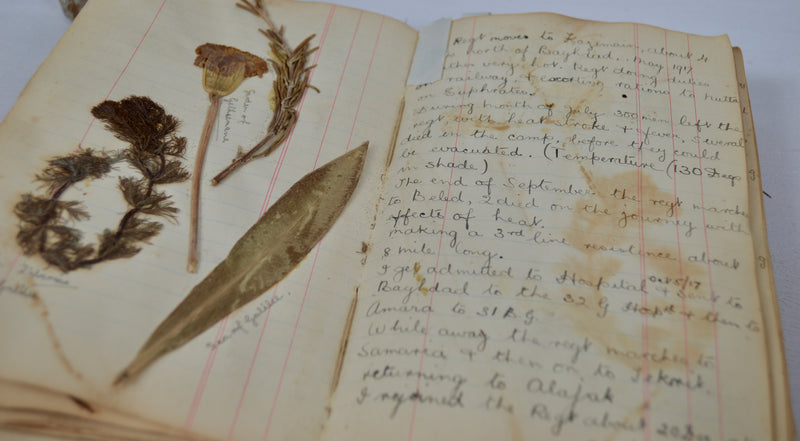 Garden of
Gethsemane
Tiberias
Galilee
Sea of Galilee.
Regt moves to Kazimain, about 4
north of Baghdad. May 1917
then very hot. Regt doing duties
on railway, & escorting rations to
on Euphrates.
During month of July 300 men left the
regt, with heatstroke & fever. Several
died in the camp before they could
be evacuated. (Temperature (130 Degs
in shade)
The end of September the regt marches
to Beled, 2 died on the journey with
effects of heat.
making a 3rd line resistence about
8 mile long.
I get admitted to Hospital Oct 5/17 & sent to
Baghdad to the 32 G Hosptl & then to
Amara to 31 B.G.
While away the regt marches to
Samarra & then on to Tekrit.
returning to Alajak
I rejoined the Regt about 20